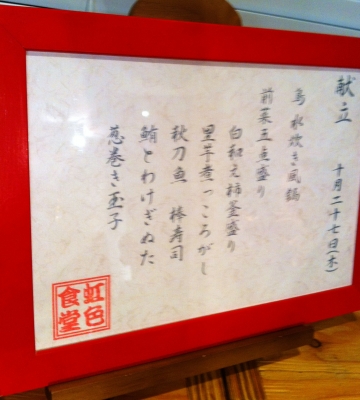 献立 十月二十七日(木)
鳥水炊き風鍋
前菜五点盛り
白和え柿釜盛り
里芋煮っころがし
秋刀魚 棒寿司
鮪とわけぎぬた
葱巻き玉子
虹色食堂